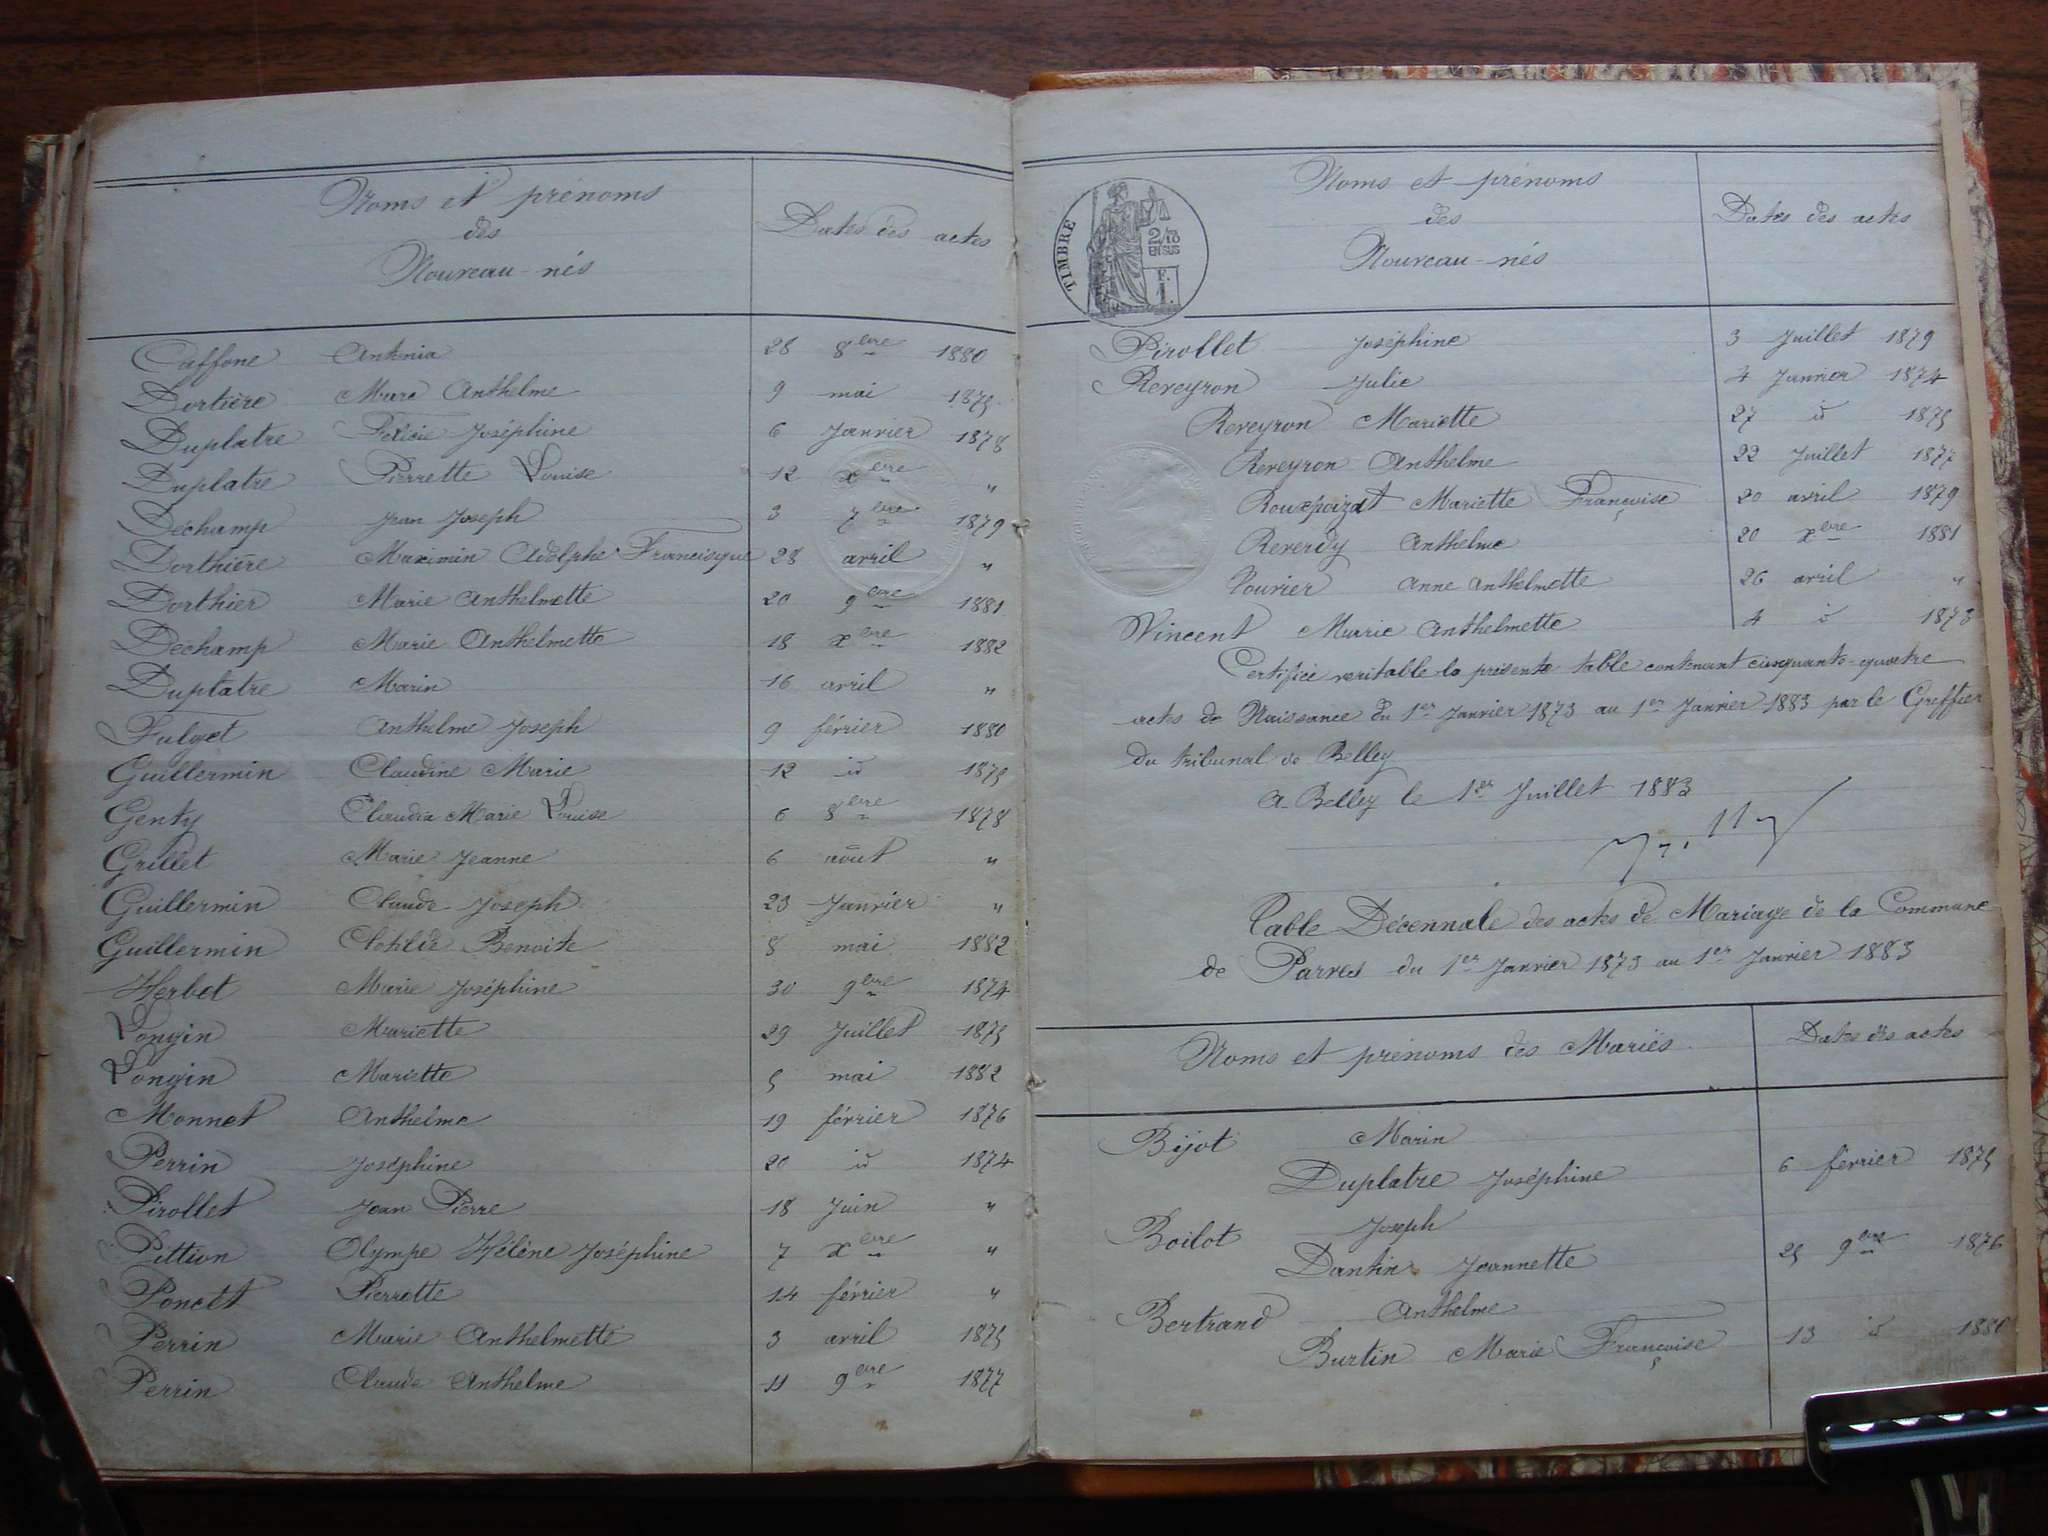 Noms et prénoms
des
Nouveau-nés
Dates des actes
Caffone Antonia 28 8bre 1880
Dortière Marc Anthelme 9 mai 1875
Duplatre Félicie Joséphine 6 Janvier 1878
Duplatre Pierrette Louise 12 xbre "
Dechamp Jean Joseph 3 7bre 1879
Dorthière Maximin Adolphe Francisque 28 avril "
Dorthier Marie Anthelmette 20 9bre 1881
Déchamp Marie Anthelmette 18 xbre 1882
Duplatre Marin 16 avril "
Fulget Anthelme Joseph 9 février 1880
Guillermin Claudine Marie 12 id 1875
Genty Claudia Marie Louise 6 8bre 1878
Grillet Marie Jeanne 6 août "
Guillermin Claude Joseph 23 Janvier "
Guillermin Clotilde Benoite 8 mai 1882
Herbet Marie Joséphine 30 9bre 1874
Longin Mariette 29 Juillet 1875
Longin Mariette 5 mai 1882
Monnet Anthelme 19 février 1876
Perrin Joséphine 20 id 1874
Pirollet Jean Pierre 18 Juin "
Pittion Olympe Hélène Joséphine 7 xbre "
Poncet Pierrette 14 février "
Perrin Marie Anthelmette 3 avril 1875
Perrin Claude Anthelme 11 9bre 1877
TIMBRE
2/10
EN SUS
F.
1.
Noms et prénoms
des
Nouveau-nés
Dates des actes
Pirollet Joséphine 3 Juillet 1879
Reveyron Julie 4 Janvier 1874
Reveyron Mariette 27 id 1875
Reveyron Anthelme 22 Juillet 1877
Rouxpoizat Mariette Françoise 20 avril 1879
Reverdy Anthelme 20 xbre 1881
Pourier Anne Anthelmette 26 avril "
Vincent Marie Anthelmette 4 id 1873
Certifiée veritable la présente table contenant cinquante-quatre
actes de Naissance du 1er Janvier 1873 au 1er Janvier 1883 par le Greffier
du tribunal de Belley
A Belley le 1er Juillet 1883
Table Décennale des actes de Mariage de la Commune
de Parves du 1er Janvier 1873 au 1er Janvier 1883
Noms et prénoms des Mariés
Dates des actes
Bijot Marin
Duplatre Joséphine 6 février 1875
Boilot Joseph
Dantin Jeannette 25 9bre 1876
Bertrand Anthelme
Burtin Marie Françoise 13 id 1880